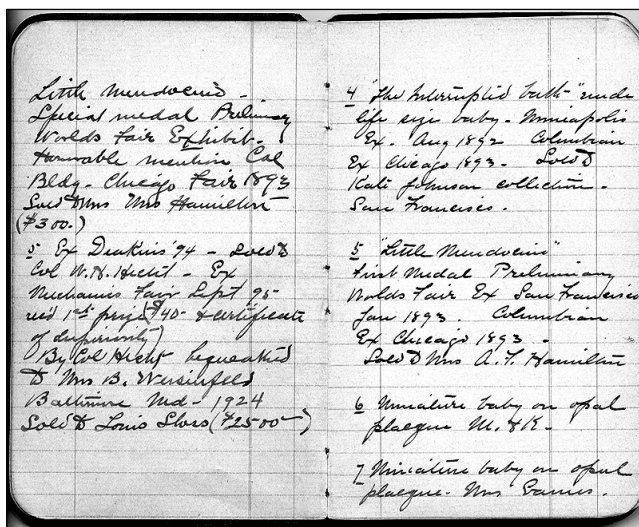 Little Mendocino -
Special medal Preliminary
Worlds Fair Exhibit -
Honorable mention Cal
Bldg - Chicago Fair 1893
Sold to Mrs Hamilton
($300.)
5 Ex Deakins '94 - Sold to
Col W. H. Hecht - Ex
Mechanics Fair Sept 95 -
recd 1st prize $40 - & certificate
of superiority
By Col Hecht bequeathed
to Mrs B.
Baltimore Md - 1924
Sold to Louis Sloss ($2500—)
4 "The Interrupted bath" nude
life size baby - Minneapolis
Ex. Aug 1892 Columbian
Ex Chicago 1893 - Sold to
Kate Johnson collection -
San Francisco.
5 "Little Mendocino"
First Medal Preliminary
Worlds Fair Ex San Francisco
Jan 1893. Columbian
Ex Chicago 1893 -
Sold to Mrs A. F. Hamilton
6 Miniature baby on opal
plaque M. & K -
7 Miniature baby on opal
plaque - Mrs